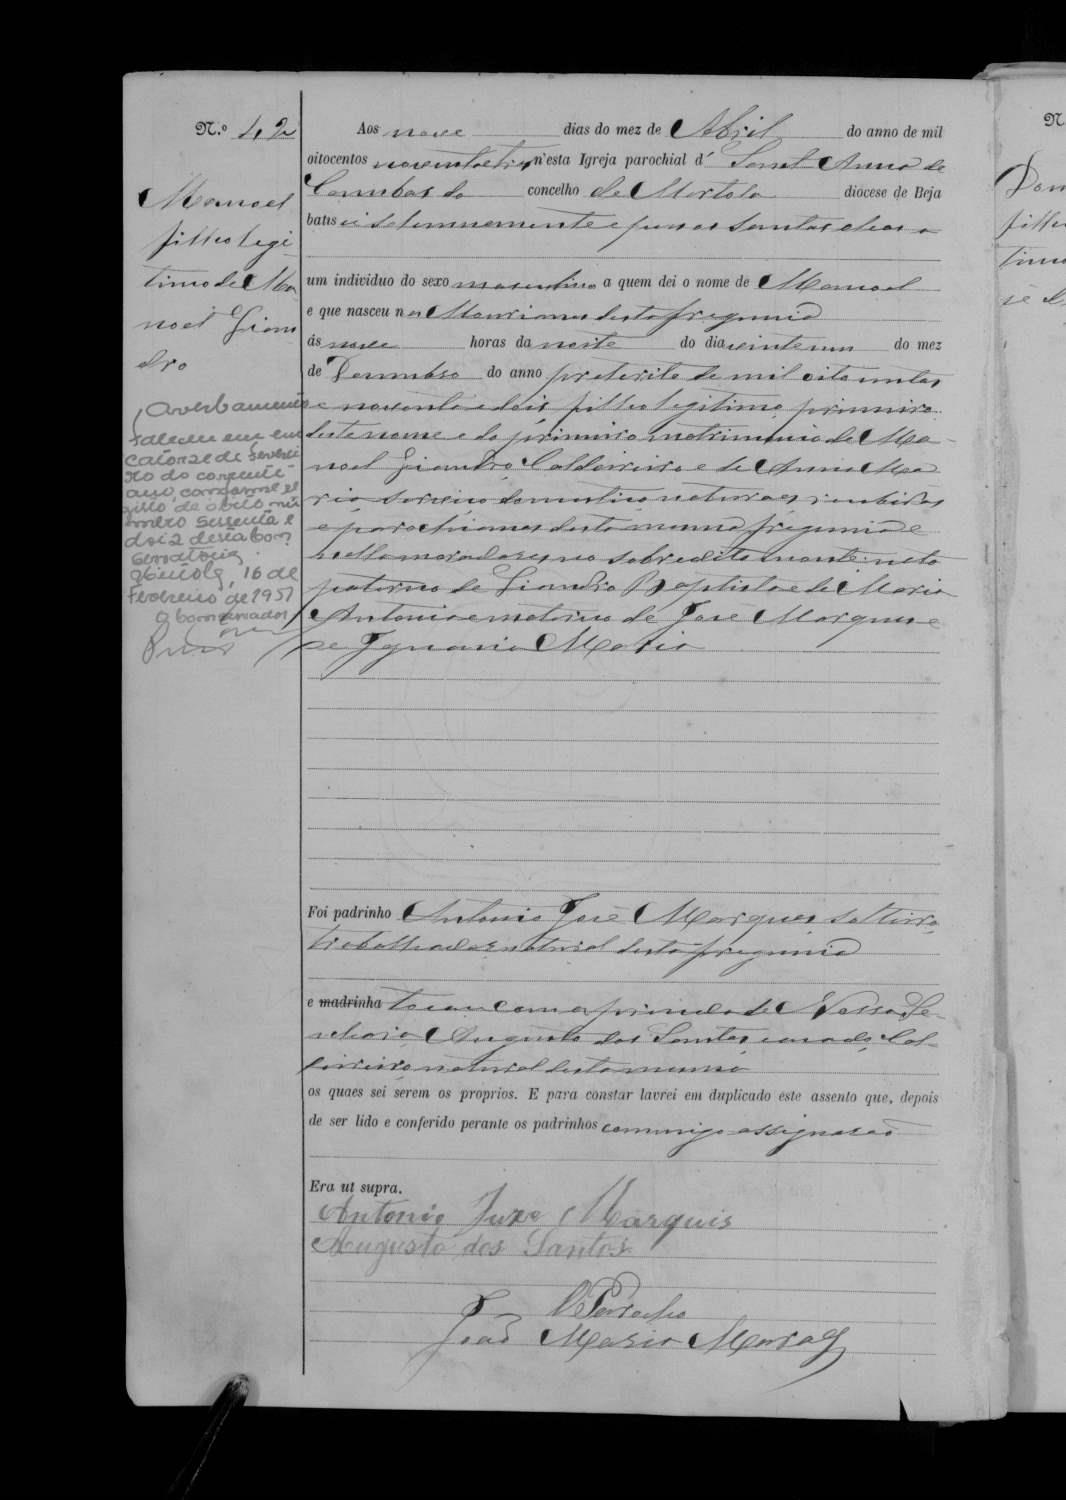 N.º 42
Manoel
filho legi-
timo de Ma
noel Lian
dro
Averbamento
Faleceu em em
catorze de feverei
ro do corrente
ano, conforme re
gisto de obito nú
mero sessenta e
dois desta Con
servatoria
16 de
Fevereiro de 1951
O Conservador
Aos nove dias do mez de Abril do anno de mil
oitocentos noventa e tres, n'esta Igreja parochial d' Sant Anna de
Cambas do concelho de Mertola diocese de Beja
batisei solemnemente e puz os santos oleos a
um individuo do sexo masculino a quem dei o nome de Manoel
e que nasceu n desta freguesia
ás nove horas da noite do dia vinte e um do mez
de Dezembro do anno preterito de mil oitocentos
e noventa e dois, filho legitimo, primeiro
deste nome e do primeiro matrimonio de Ma-
noel Liandro, Caldeireiro e de Anna Ma
ria serviço domestico naturaes, recebidos
e parochianos desta mesma freguesia e
nella moradores no sobredito monte: neto
paterno de Liandro Baptista e de Maria
Antonia e materno de José Marques e
de Ignacia Maria
Foi padrinho Antonio José Marques, solteiro,
trabalhador natural desta freguesia
e madrinha tocou com a prenda de Nossa Se-
nhora, Augusto dos Santos, casado, Cal-
deireiro, natural desta mesma
os quaes sei serem os proprios. E para constar lavrei em duplicado este assento que, depois
de ser lido e conferido perante os padrinhos commigo assignarão
Era ut supra.
Antonio Juze Marquis
Augusto dos Santos
O Parocho
João Maria